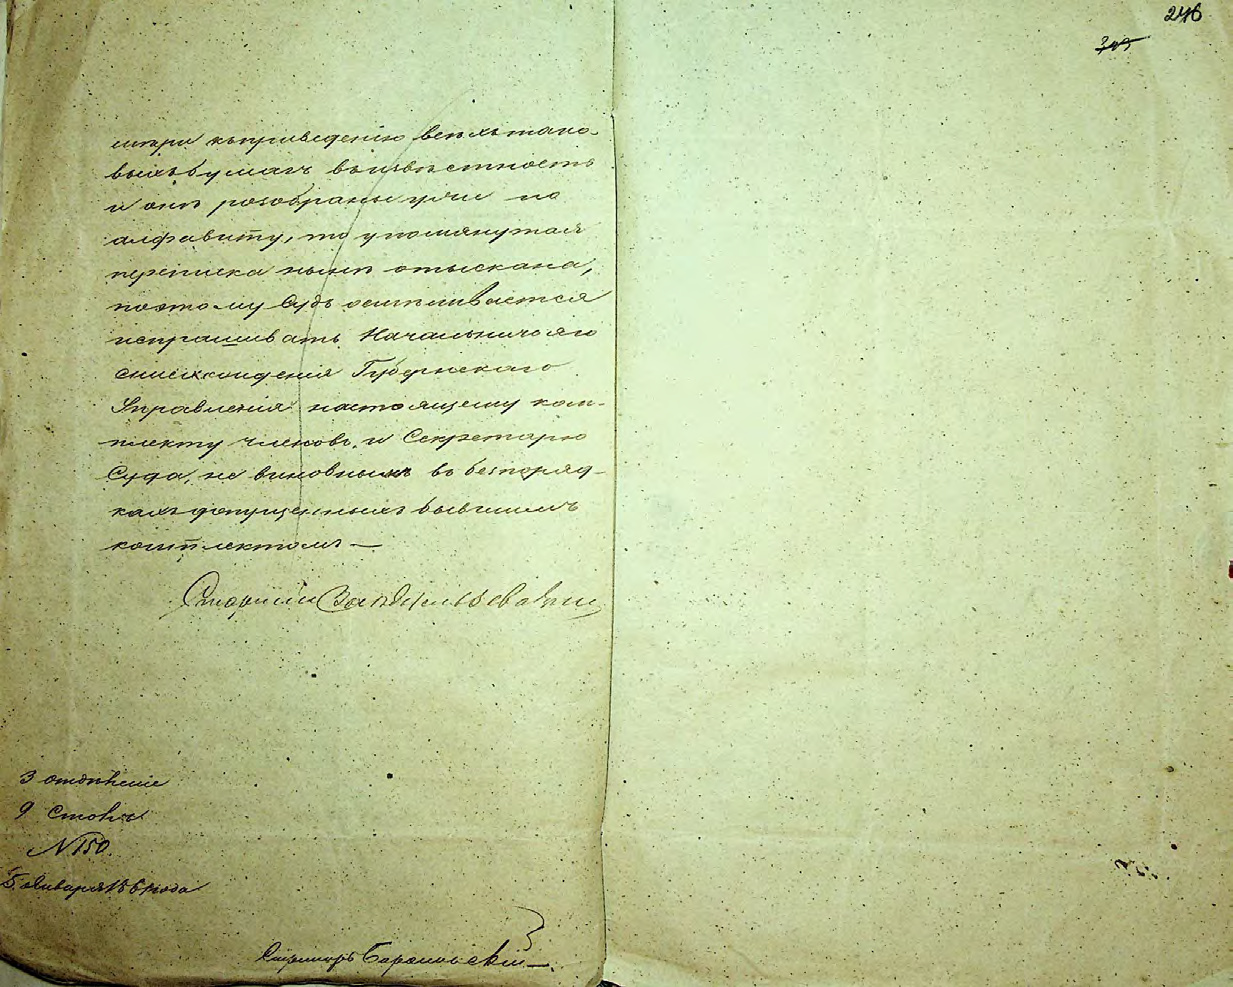 246
меры къ приведенію всѣхъ тако-
выхъ бумагъ въ извѣстность
и онѣ розобраны уже по
алфавиту, то упомянутая
переписка нынѣ отыскана,
поэтому Судъ осмѣливается
испрашивать Начальничьяго
снисхожденія Губернскаго
Управленія настоящему ком-
плекту членовъ и Секретарю
Суда, не виновныхъ въ безпоряд-
кахъ допущенныхъ бывшимъ
комплектомъ —
3 отдѣленіе
9 Столъ
N 150
5 Января 1861 года